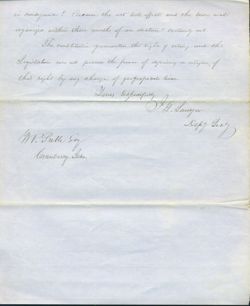 in consequence? Because the act took effect and the town was
organized within three months of an election? Certainly not.
The constitution guarantees the right of voting and the
Legislature can not possess the power of depriving a citizen of
this right by any change of geographical lines.
Yours Respectfully
J. G. Sawyer
Dept. Secty
W. P. Tuttle Esq